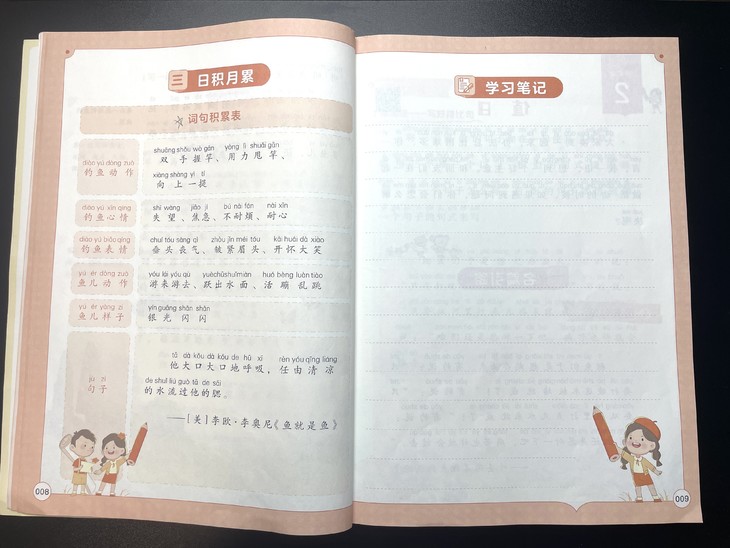 三 日积月累
词句积累表
diào yú dòng zuò
钓鱼动作
shuāng shǒu wò gān yòng lì shuǎi gān
双手握竿、用力甩竿、
xiàng shàng yì tí
向上一提
diào yú xīn qíng
钓鱼心情
shī wàng jiāo jí bú nài fán nài xīn
失望、焦急、不耐烦、耐心
diào yú biǎo qíng
钓鱼表情
chuí tóu sàng qì zhòu jǐn méi tóu kāi huái dà xiào
垂头丧气、皱紧眉头、开怀大笑
yú ér dòng zuò
鱼儿动作
yóu lái yóu qù yuèchūshuǐmiàn huó bèng luàn tiào
游来游去、跃出水面、活蹦乱跳
yú ér yàng zi
鱼儿样子
yín guāng shǎn shǎn
银光闪闪
jù zi
句子
tā dà kǒu dà kǒu de hū xī rèn yóu qīng liáng
他大口大口地呼吸，任由清凉
de shuǐ liú guò tā de sāi
的水流过他的腮。
——[美]李欧·李奥尼《鱼就是鱼》
008
学习笔记
009